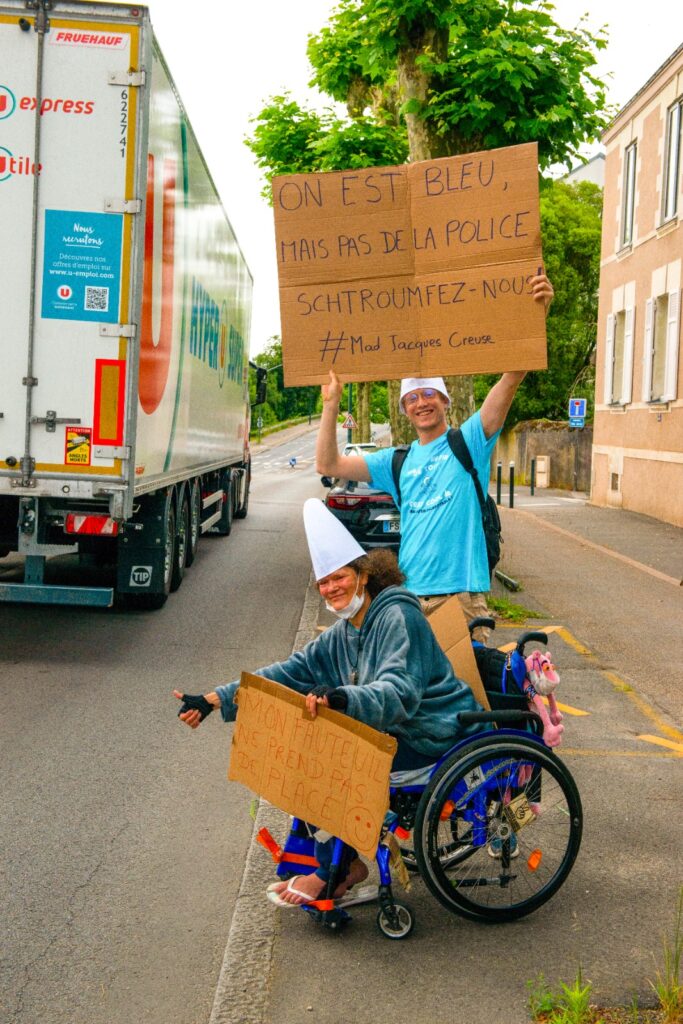 FRUEHAUF
U express
U tile
622741
Nous
recrutons
Découvrez nos
offres d'emploi sur
www.u-emploi.com
U
U
HYPER U
ATTENTION
TIP
ON EST BLEU,
MAIS PAS DE LA POLICE
SCHTROUMFEZ-NOUS
#Mad Jacques Creuse
MON FAUTEUIL
NE PREND PAS
DE PLACE